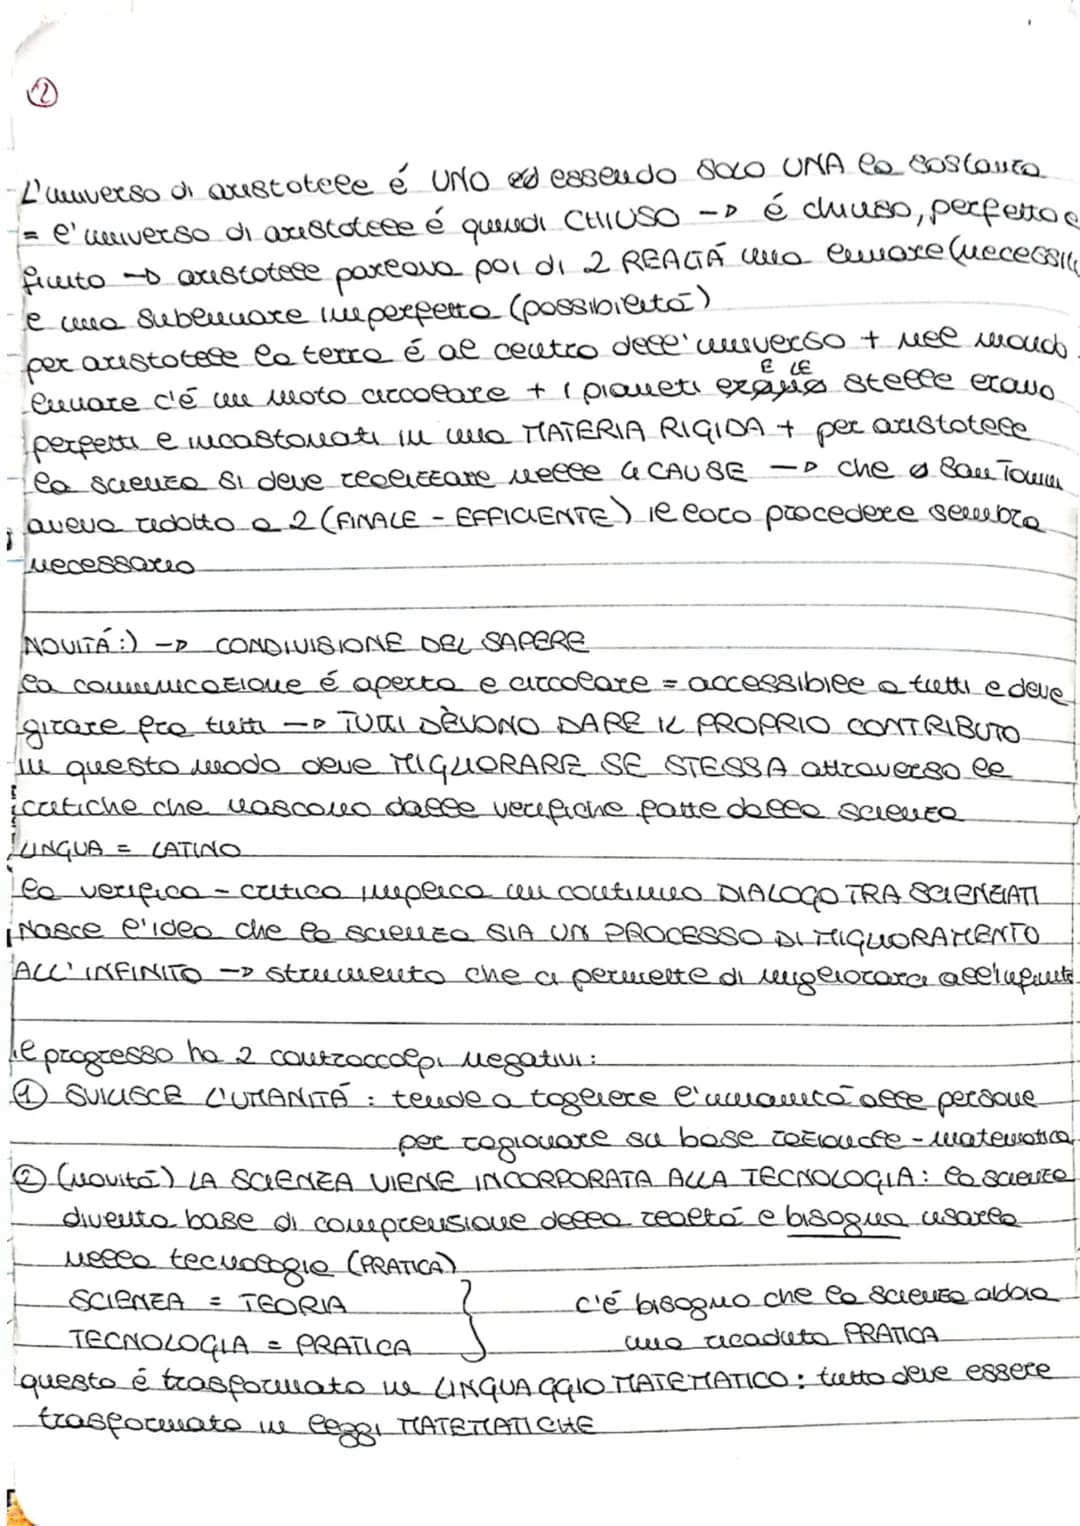 2
L'universo di aristotele é UNO ed essendo SOLO UNA la sostanza
= l'universo di aristotele é quindi CHIUSO -> é chiuso, perfetto e
finito -> aristotele parlava poi di 2 REALTÁ una lunare (necessità
e una sublunare imperfetta (possibilitá)
per aristotele la terra é al centro dell'universo + nel mondo
E LE
lunare c'é un moto circolare + i pianeti erano stelle erano
perfetti e incastonati in una MATERIA RIGIDA + per aristotele
la scienza si deve realizzare nelle 4 CAUSE -> che San Tomm
aveva ridotto a 2 (FINALE - EFFICIENTE) il loro procedere sembra
necessario
NOVITÁ :) -> CONDIVISIONE DEL SAPERE
la comunicazione é aperta e circolare = accessibile a tutti e deve
girare fra tutti -> TUTTI DEVONO DARE IL PROPRIO CONTRIBUTO
in questo modo deve MIGLIORARE SE STESSA attraverso le
critiche che nascono dalle verifiche fatte dalla scienza
LINGUA = LATINO
la verifica - critica implica un continuo DIALOGO TRA SCIENZIATI
Nasce l'idea che la scienza SIA UN PROCESSO DI MIGLIORAMENTO
ALL'INFINITO -> strumento che ci permette di migliorarci all'infinito
il progresso ha 2 contraccolpi negativi:
1 SVILISCE L'UMANITÁ : tende a togliere l'umanitá alle persone
per ragionare su base razionale - matematica
2 (novitá) LA SCIENZA VIENE INCORPORATA ALLA TECNOLOGIA: la scienza
diventa base di comprensione della realtá e bisogna usarla
nella tecnologia (PRATICA)
SCIENZA = TEORIA } c'é bisogno che la scienza abbia
TECNOLOGIA = PRATICA una ricaduta PRATICA
questo é trasformato in LINGUAGGIO MATEMATICO : tutto deve essere
trasformato in leggi MATEMATICHE